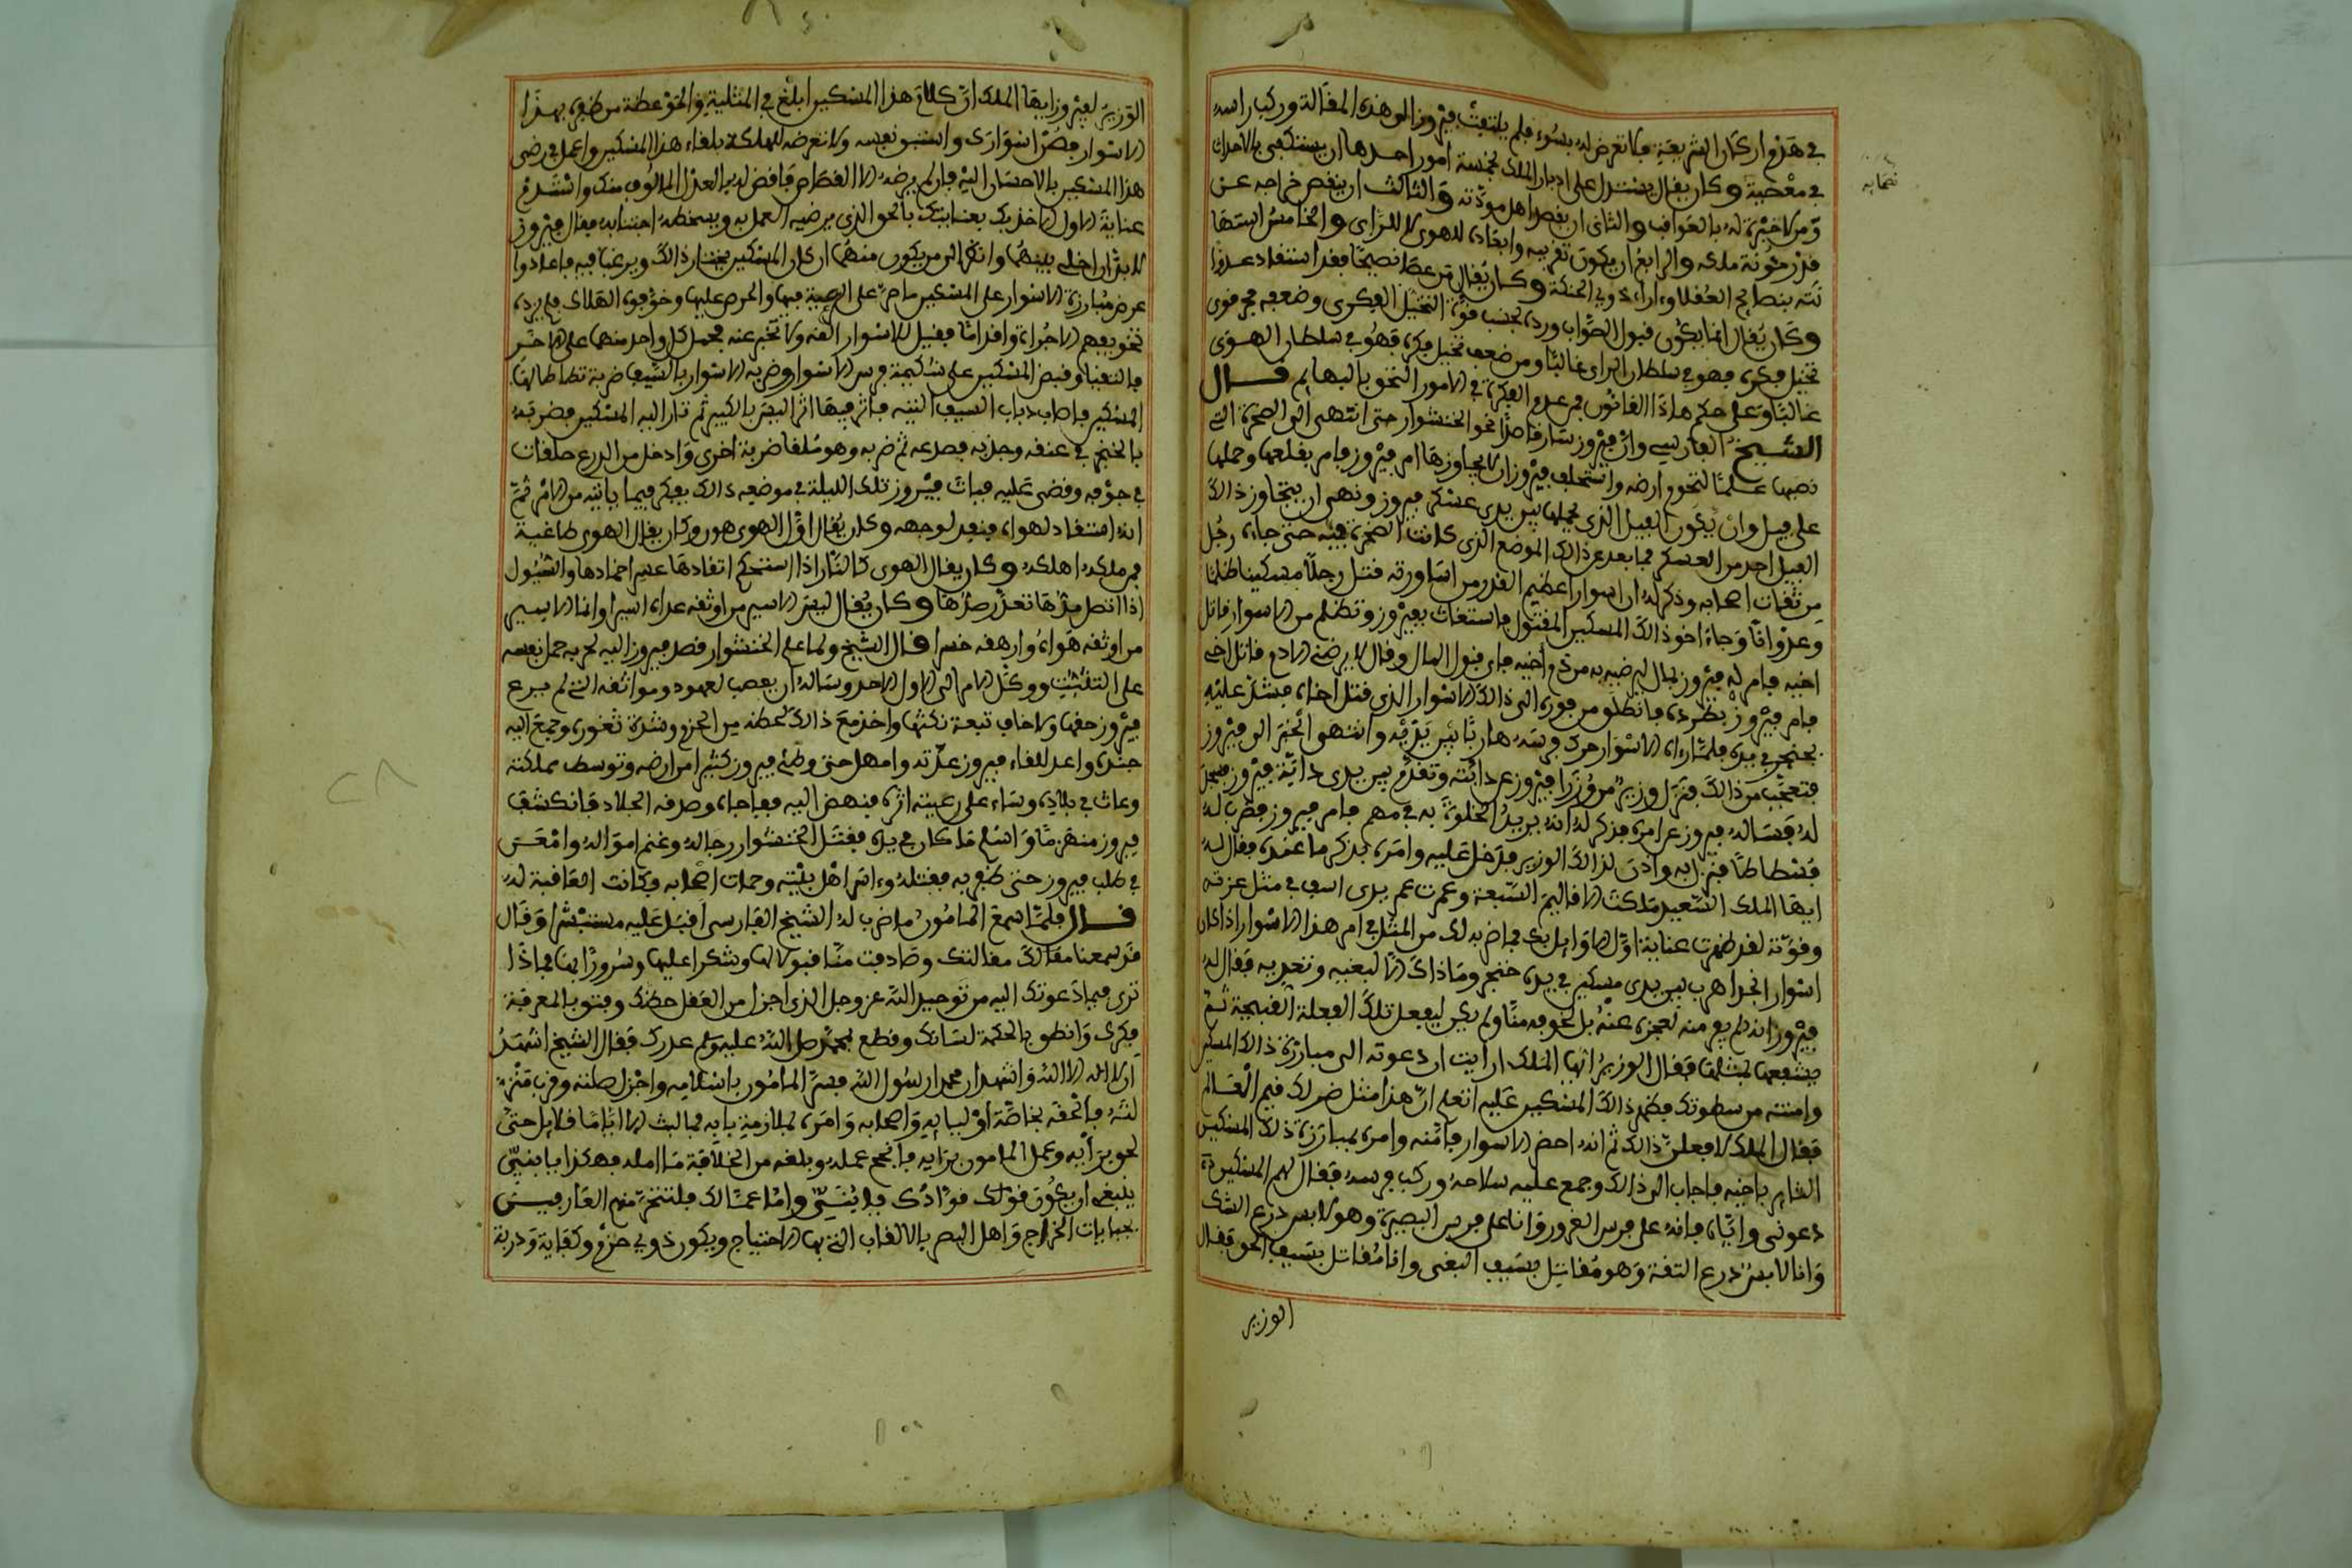 في هدم اركان الشريعة فلا تعرض له بسوء فلم يلتفت فيروز الى هذه المقالة وركب راسه
في معصية وكان يقال يستدل على ادبار الملك بخمسة امور احدها ان يستكفي بالاحداث
ومن لا خبرة له بالعواقب والثاني ان يقصد اهل مودته والثالث ان ينقص خراجه عن
قدر مئونة ملكه والرابع ان يكون تقريبه وابعاده للهوى لا للراي والخامس استها
نته بنصائح العقلاء واراء ذوي الحنكة وكان يقال من عصا نصيحا فقد استفاد عدوا
وكان يقال انما يكون قبول الصواب ورده بحسب قوة التخيل الفكري وضعفه فمن قوى
تخيل فكره فهو في سلطان الراي غالبا ومن ضعف تخيل فكره فهو في سلطان الهوى
غالبا وعلى حكم هاذا القانون فمن عدم الفكرة في الامور التحق بالبهايم قال
الشيخ الفارسي وان فيروز سار قاصدا نحو الخنشوار حتى انتهى الى الصخرة التي
نصبها علما لتخوم ارضه واستحلف فيروز ان لا يجاوزها امر فيروز فامر بقلعها وحملها
على فيل وان يكون الفيل الذي يحملها بين يدي عسكر فيروز ونهى ان يتجاوز ذالك
الفيل احد من العسكر فما بعد عن ذالك الموضع الذي كانت الصخرة فيه حتى جاءه رجل
من ثقات اصحابه وذكر له ان اسوارا عظيم القدر من اساورته قتل رجلا مسكينا ظلما
وعدوانا وجاء اخو ذالك المسكين المقتول فاستغاث بفيروز وتظلم من الاسوار قاتل
اخيه فامر له فيروز بمال ليرضيه به من دم اخيه فابى قبول المال وقال لا يرضني الا دم قاتل اخي
فامر فيروز بطرده فانطلق من فوره الى ذالك الاسوار الذي قتل اخاه فشد عليه
بخنجر في يده فلما راءه الاسوار حرك فرسه هاربا بين يديه وانتهى الخبر الى فيروز
فتعجب من ذالك فنزل وزير من وزرا فيروز عن دابته وتقدم بين يدي دابة فيروز فسجد
له فساله فيروز عن امره فذكر له انه يريد الخلوة به في مهم فامر فيروز فضرب له
فسطاطا فنزل به واذن لذالك الوزير فدخل عليه وامره بذكر ما عنده فقال له
ايها الملك السعيد ملكت الاقاليم السبعة وعمرت عمر يدى اسف في مثل عزته
وقوته لقد ظهرت عناية اول الاوايل بك فيما ضربه لك من المثل في امر هذا الاسوار اذ كان
اسوار انجدا هرب بين يدي مسكين في يده خنجر وما ذاك الا لبغيه وتعديه فقال له
فيروز انه لم يفر منه لعجزه عنه بل لخوفه منا ولم يكن ليفعل تلك الفعلة القبيحة ثم
يشفعها بمثلها فقال الوزير ايها الملك ارايت ان دعوته الى مبارزة ذالك المسكين
وامنته من سطوتك فظهر ذالك المسكين عليه اتعلم ان هذا مثل ضربه لك قيم العالم
فقال الملك لافعلن ذالك ثم انه احضر الاسوار فامنه وامره بمبارزة ذلك المسكين
الثاير باخيه فاجاب الى ذالك وجمع عليه سلاحه وركب فرسه فقال لهم المسكين
دعوني واياه فانه على فرس الغرور وانا على فرس البصيرة وهو لابس درع الشك
وانا لابس درع الثقة وهو مقاتل بسيف البغي وانا مقاتل بسيف الحق فقال
الوزير
الوزير لفيروز ايها الملك ان كلام هذا المسكين ابلغ في المثلية والموعظة من ظفره بهذا
الاسوار فصن اسوارك واستبق نفسه ولا تعرضه للهلكة بلقاء هذا المسكين واعمل في رضى
هذا المسكين بالاحسان اليه فان لم يرضه الا القصاص فاقض له بالعدل المالوف منك واستدم
عناية الاول الاخذ بك بعنايتك بالحق الذي يرضيه العمل به ويسخطه اجتنابه فقال فيروز
لا بد ان اخلي بينهما وانظر الى من يكون منهما ان كان المسكين يختار ذالك ويرغب فيه فاعادوا
عرض مبارزة الاسوار على المسكين فاصر على الرغبة فيها والحرص عليها وخوفوه الهلاك فلم يزده
تخويفهم الا جراءة واقداما فقيل للاسوار القه ولا تخم عنه فحمل كل واحد منهما على الاخر
فالتقيا وقبض المسكين على شكيمة فرس الاسوار وضربه الاسوار بالسيف ضربة تطاطا لها
المسكين فاصاب ذباب السيف اليته فاثر فيها اثرا ليس بالكبير ثم ثار اليه المسكين فضربه
بالخنجر في عنقه وجذبه فصرعه ثم ضربه وهو ملقا ضربة اخرى وادخل من الدرع حلقات
في جوفه وقضى عليه فبات فيروز تلك الليلة في موضعه ذالك يفكر فيما ياتيه من الامر ثم
انه استقاد لهواه فنفذ لوجهه وكان يقال اول الهوى هون وكان يقال الهوى طاغية
فمن ملكه اهلكه وكان يقال الهوى كالنار اذا استحكم اتقادها عسر اخمادها والسيول
اذا اتصل مدها تعذر صدها وكان يقال ليس الاسير من اوثقه عداه اسيرا وانما الاسير
من اوثقه هواه وارهقه خسرا قال الشيخ ولما علم الخنشوار قصد فيروز اليه لحربه حمل نفسه
على التثبت ووكل الامر الى الاول الاحد وساله ان يعصب لعهوده ومواثقه التي لم يرع
فيروز حقها ولا خاف تبعة نكثها واخذ مع ذالك لحظه من الحزم وشدة ثغوره وجمع اليه
جنده واعد للقاء فيروز عدته وامهل حتى وطئ فيروز كثيرا من ارضه وتوسط مملكته
وعاث في بلاده وساء على رعيته اثره فنهض اليه ففاجاه وصدقه الجلاد فانكشف
فيروز منهزما واسلم ما كان في يده فقتل الخنشوار رجاله وغنم امواله وامعن
في طلب فيروز حتى ظفر به فقتله واسر اهل بيته وحماة اصحابه وكانت العاقبة له
قال فلما سمع المامون ما ضرب له الشيخ الفارسي اقبل عليه مستبشرا وقال
قد سمعنا مقالك مقالتك وصادفت منا قبولا لها وشكرا عليها وسرورا بها فماذا
ترى فيما دعوتك اليه من توحيد الله عز وجل الذي اجزل من العقل حظك وفتق بالمعرفة
فكرك وانطق بالحكمة لسانك وقطع بمحمد صلى الله عليه وسلم عذرك فقال الشيخ اشهد
ان لا اله الا الله واشهد ان محمدا رسول الله فسر المامون باسلامه واجزل صلته وقرب منز
لته فالحقه بخاصة اوليايه واصحابه وامره بملازمة بابه فما لبث الا اياما قلايل حتى
لحق بربه وعمل المامون برايه فانجح عمله وبلغه من الخلافة ما امله فهكذا يا بني
ينبغي ان يكون قولك قوادك يا بني واما عمالك فلتتخير منهم العارفين
بجبايات الخراج واهل البصر بالالقاب التي بها الاحتياج ويكون ذوي حزم وكفاية ودربة